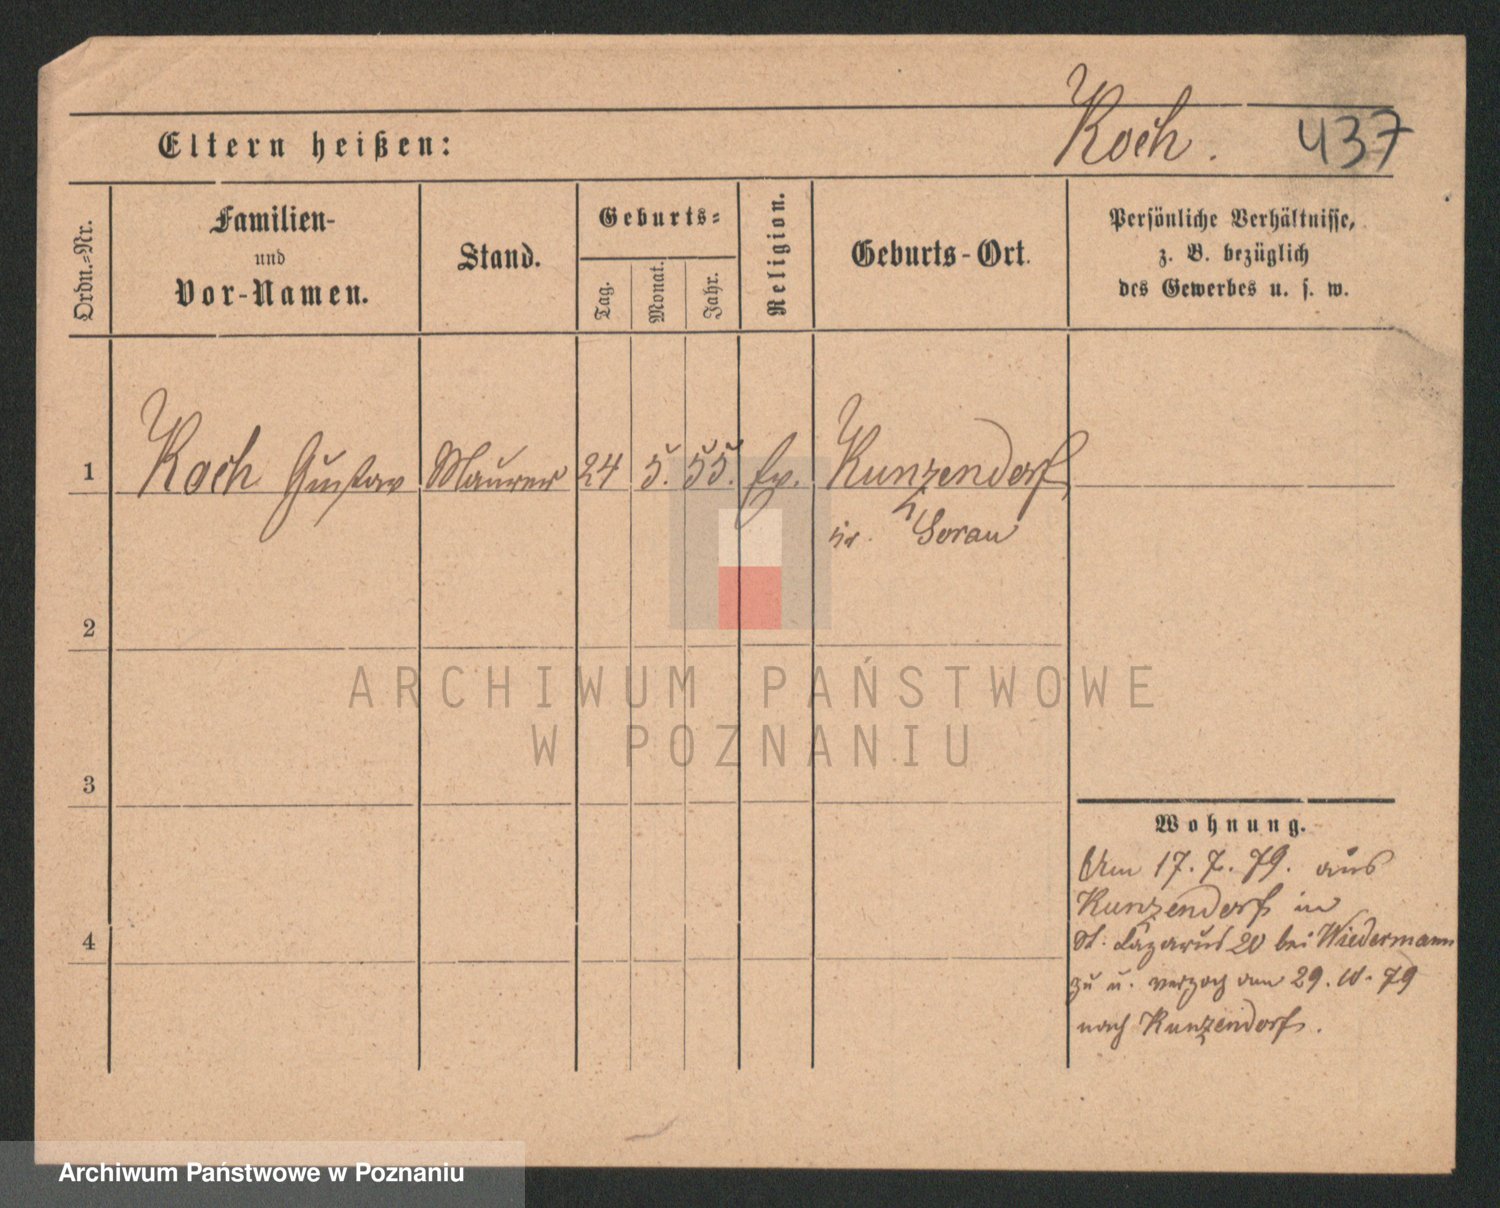 Koch. 437
Eltern heißen:
Ordn.=Nr.
Familien-
und
Vor-Namen.
Stand.
Geburts=
Tag.
Monat.
Jahr.
Religion.
Geburts-Ort.
Persönliche Verhältnisse,
z. B. bezüglich
des Gewerbes u. s. w.
1 Koch Gustav Maurer 24 5. 55. Ev. Kunzendorf
Sorau
2
3
4
Wohnung.
Am 17. 7. 79. aus
Kunzendorf in
St. Lazarus 20 bei Wiedermann
zu u. verzog am 29. 10. 79
nach Kunzendorf.
ARCHIWUM PAŃSTWOWE
W POZNANIU
Archiwum Państwowe w Poznaniu